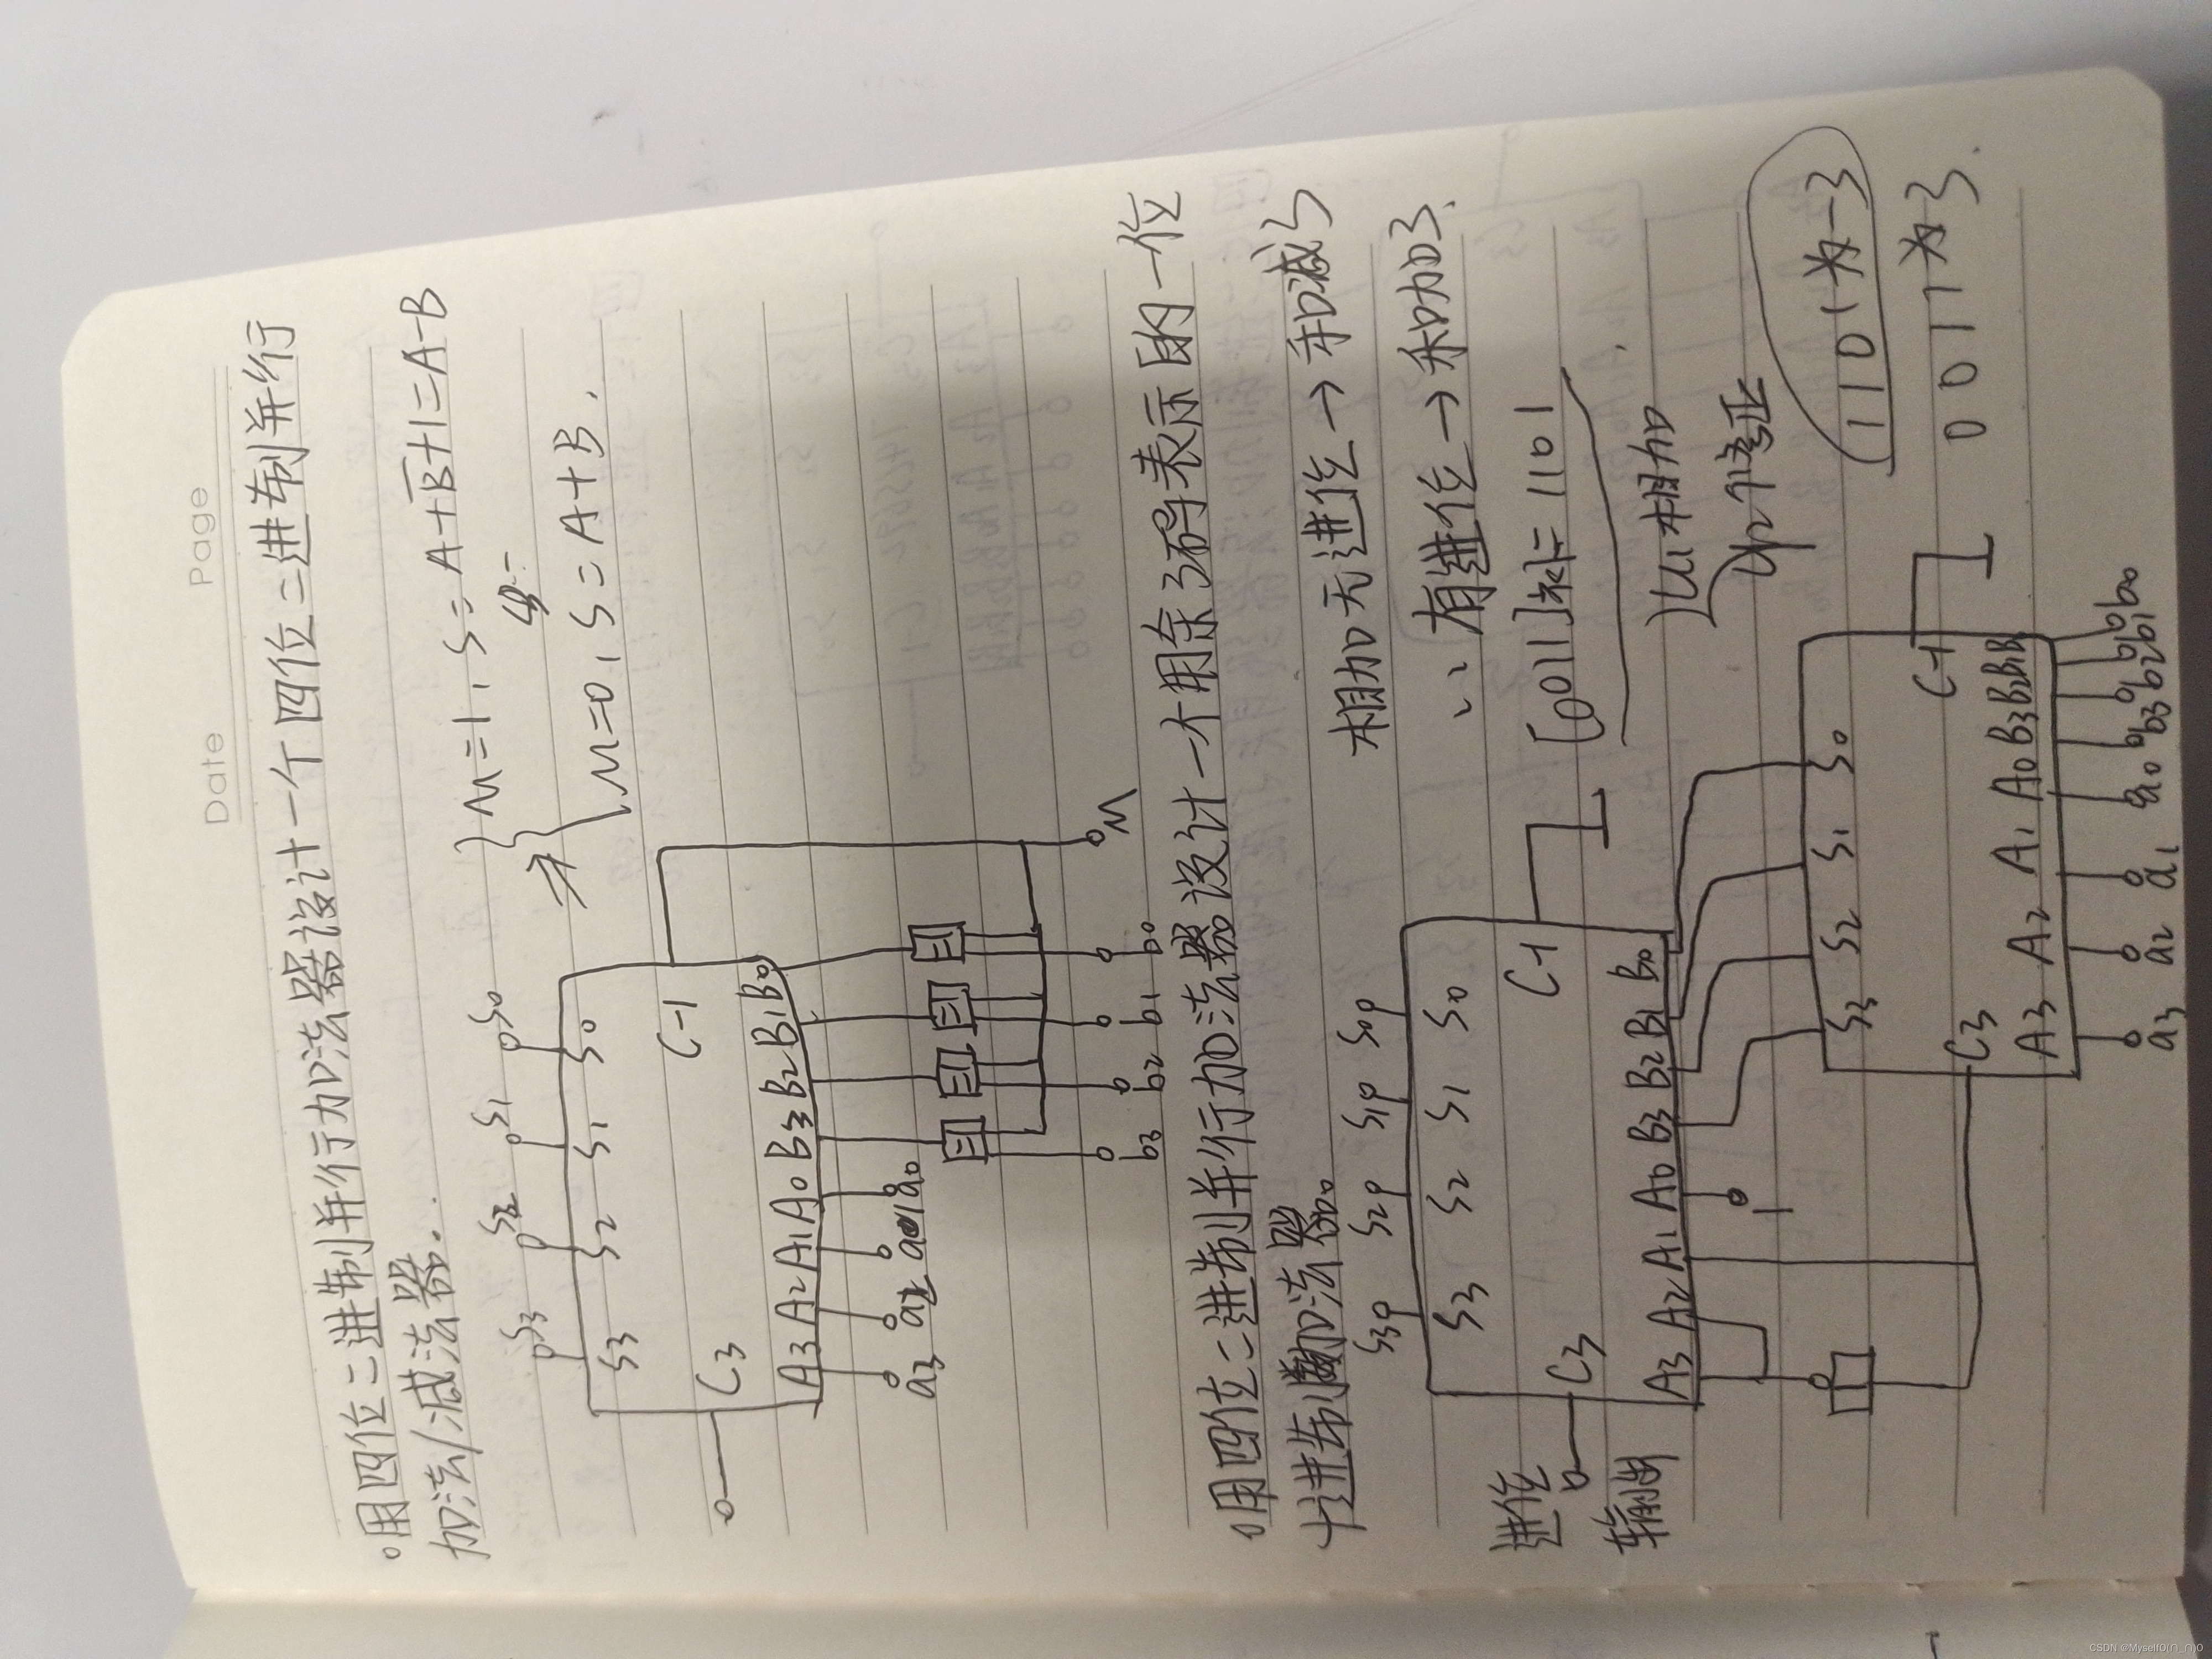 Date
Page
用四位二进制并行加法器设计一个四位二进制并行
加法/减法器.
M=1, S=A+B̅+1=A-B
M=0, S=A+B.
S3 S2 S1 S0
S3 S2 S1 S0
C3 C-1
A3 A2 A1 A0 B3 B2 B1 B0
a3 a2 a1 a0
b3 b2 b1 b0 M
用四位二进制并行加法器设计一个用余3码表示的一位
十进制加法器
相加无进位→和减3
〃 有进位→和加3.
[0011]补=1101
S3 S2 S1 S0
S3 S2 S1 S0
进位
输出
C3 C-1
A3 A2 A1 A0 B3 B2 B1 B0
1
U1相加
U2修正
1101为-3
0011为3.
S3 S2 S1 S0
C3 C-1
A3 A2 A1 A0 B3 B2 B1 B0
a3 a2 a1 a0 b3 b2 b1 b0
CSDN @MyselfO(∩_∩)O